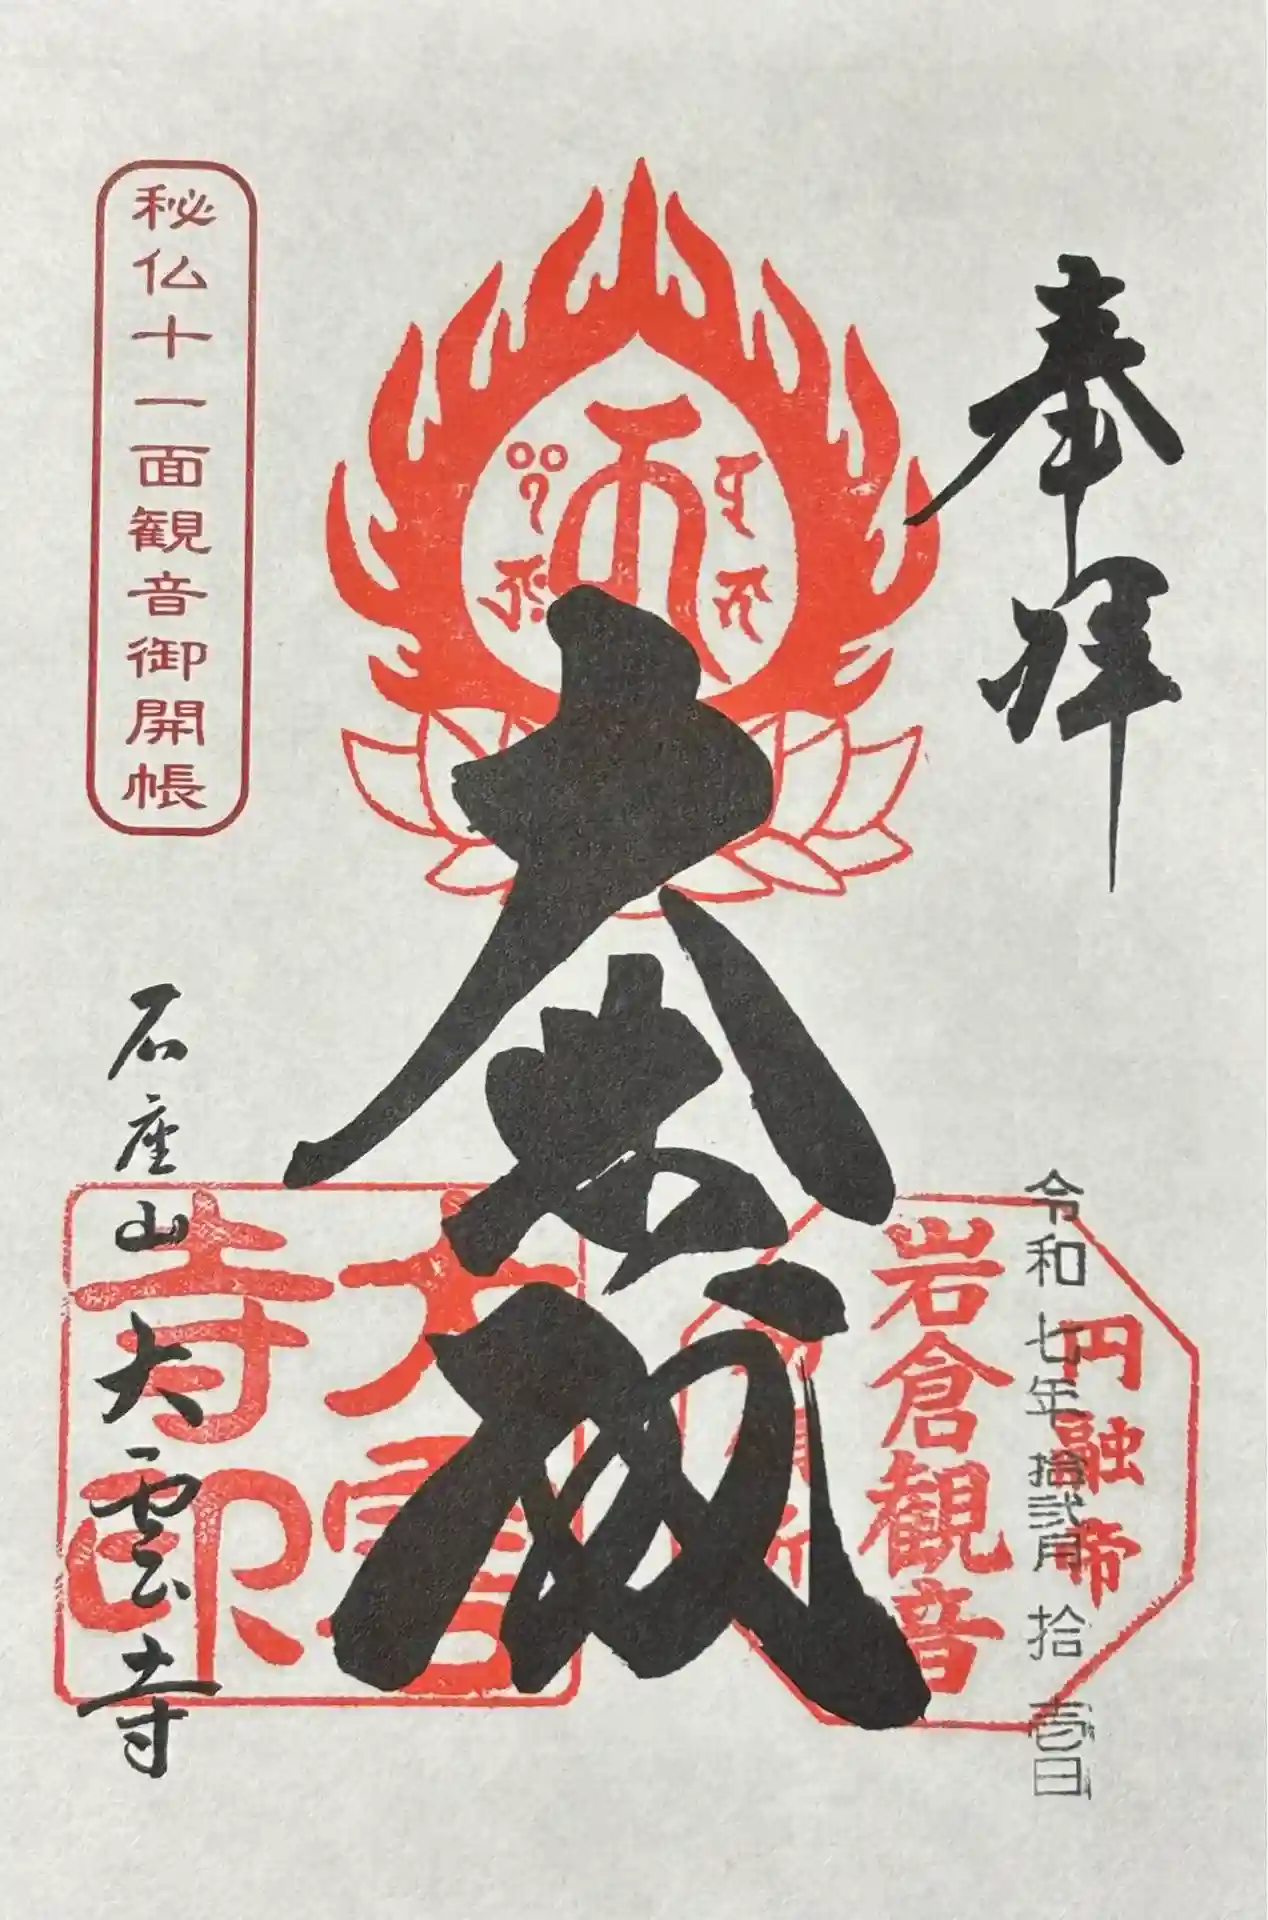 奉拝
令和七年拾弐月拾壱日
円融帝
岩倉観音
大悲殿
秘仏十一面観音御開帳
大雲
寺印
石座山大雲寺